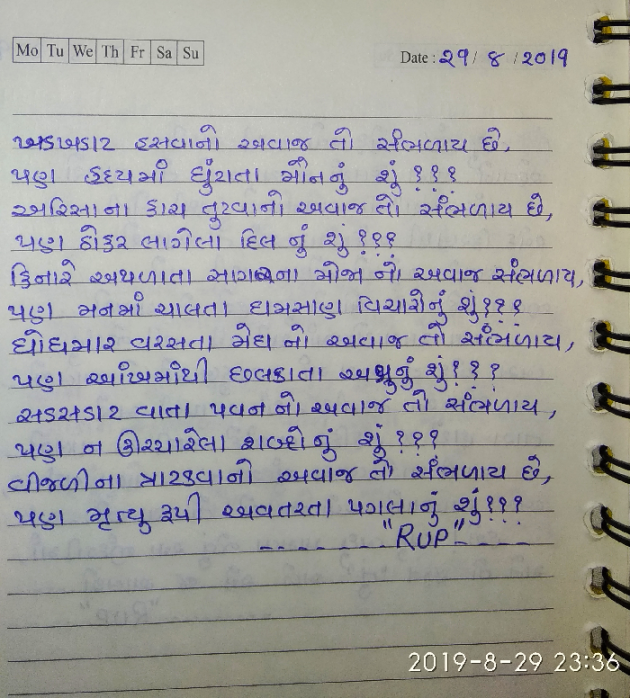 Mo Tu We Th Fr Sa Su
Date : 29 / 8 / 2019
ખડખડાટ હસવાનો અવાજ તો સંભળાય છે,
પણ હૃદયમાં ઘુંટાતા મૌનનું શું ???
અરિસાના કાચ તુટવાનો અવાજ તો સંભળાય છે,
પણ ઠોકર લાગેલા દિલ નું શું ???
કિનારે અથળાતા સાગરના મોજા નો અવાજ સંભળાય,
પણ મનમાં ચાલતા ઘમસાણ વિચારોનું શું ???
ધોધમાર વરસતા મેઘ નો અવાજ તો સંભળાય,
પણ આંખમાંથી છલકાતા અશ્રુનું શું ???
સડસડાટ વાતા પવન નો અવાજ તો સંભળાય,
પણ ન ઊચ્ચારેલા શબ્દોનું શું ???
વીજળીના ત્રાટકવાનો અવાજ તો સંભળાય છે,
પણ મૃત્યુ રૂપી અવતરતા પગલાનું શું ???
-------"RUP"----
2019-8-29 23:36